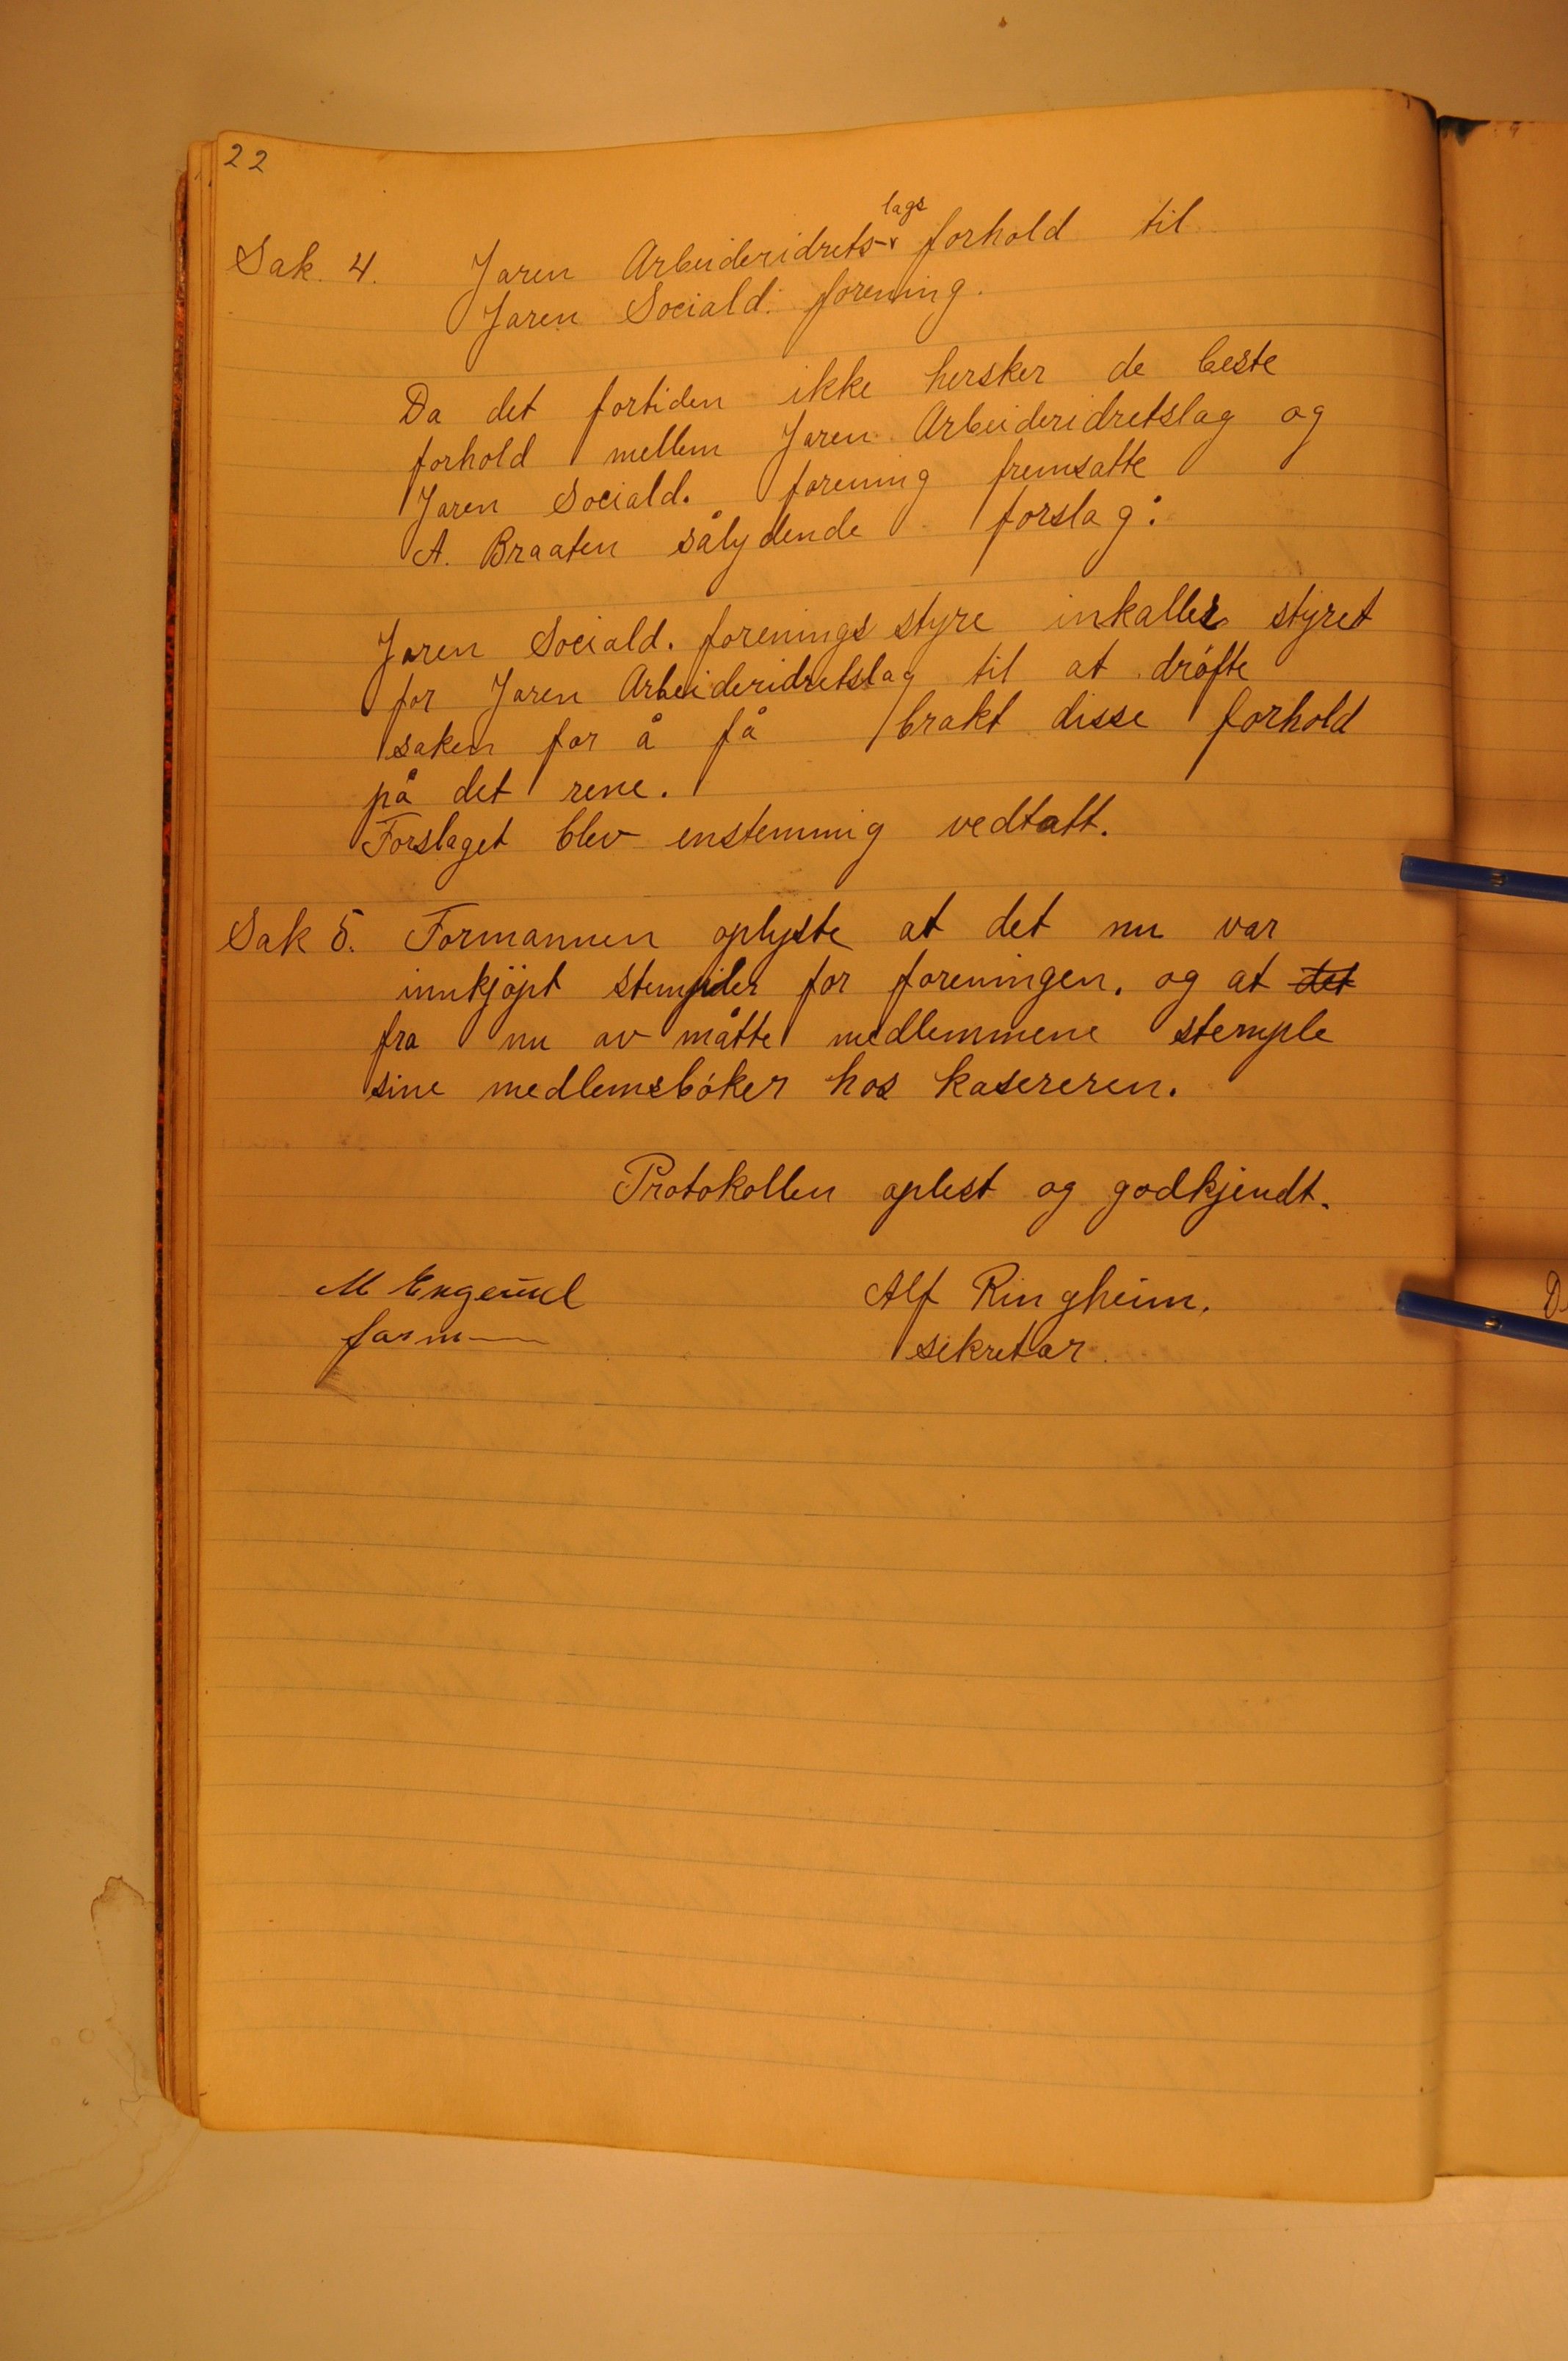 22
Sak. 4. Jaren Arbeideridrets-lags forhold til
Jaren Sociald. forening.
Da det fortiden ikke hersker de beste
forhold mellem Jaren Arbeideridretslag og
Jaren Sociald. forening fremsatte
A. Braaten sålydende forslag:
Jaren Sociald. forenings styre inkaller styret
for Jaren Arbeideridretslag til at drøfte
saken for å få brakt disse forhold
på det rene.
Forslaget blev enstemmig vedtatt.
Sak 5. Formannen oplyste at det nu var
innkjøpt stempler for foreningen, og at det
fra nu av måtte medlemmene stemple
sine medlemsbøker hos kasereren.
Protokollen oplest og godkjendt.
M Alf Ringheim.
form sekretær.